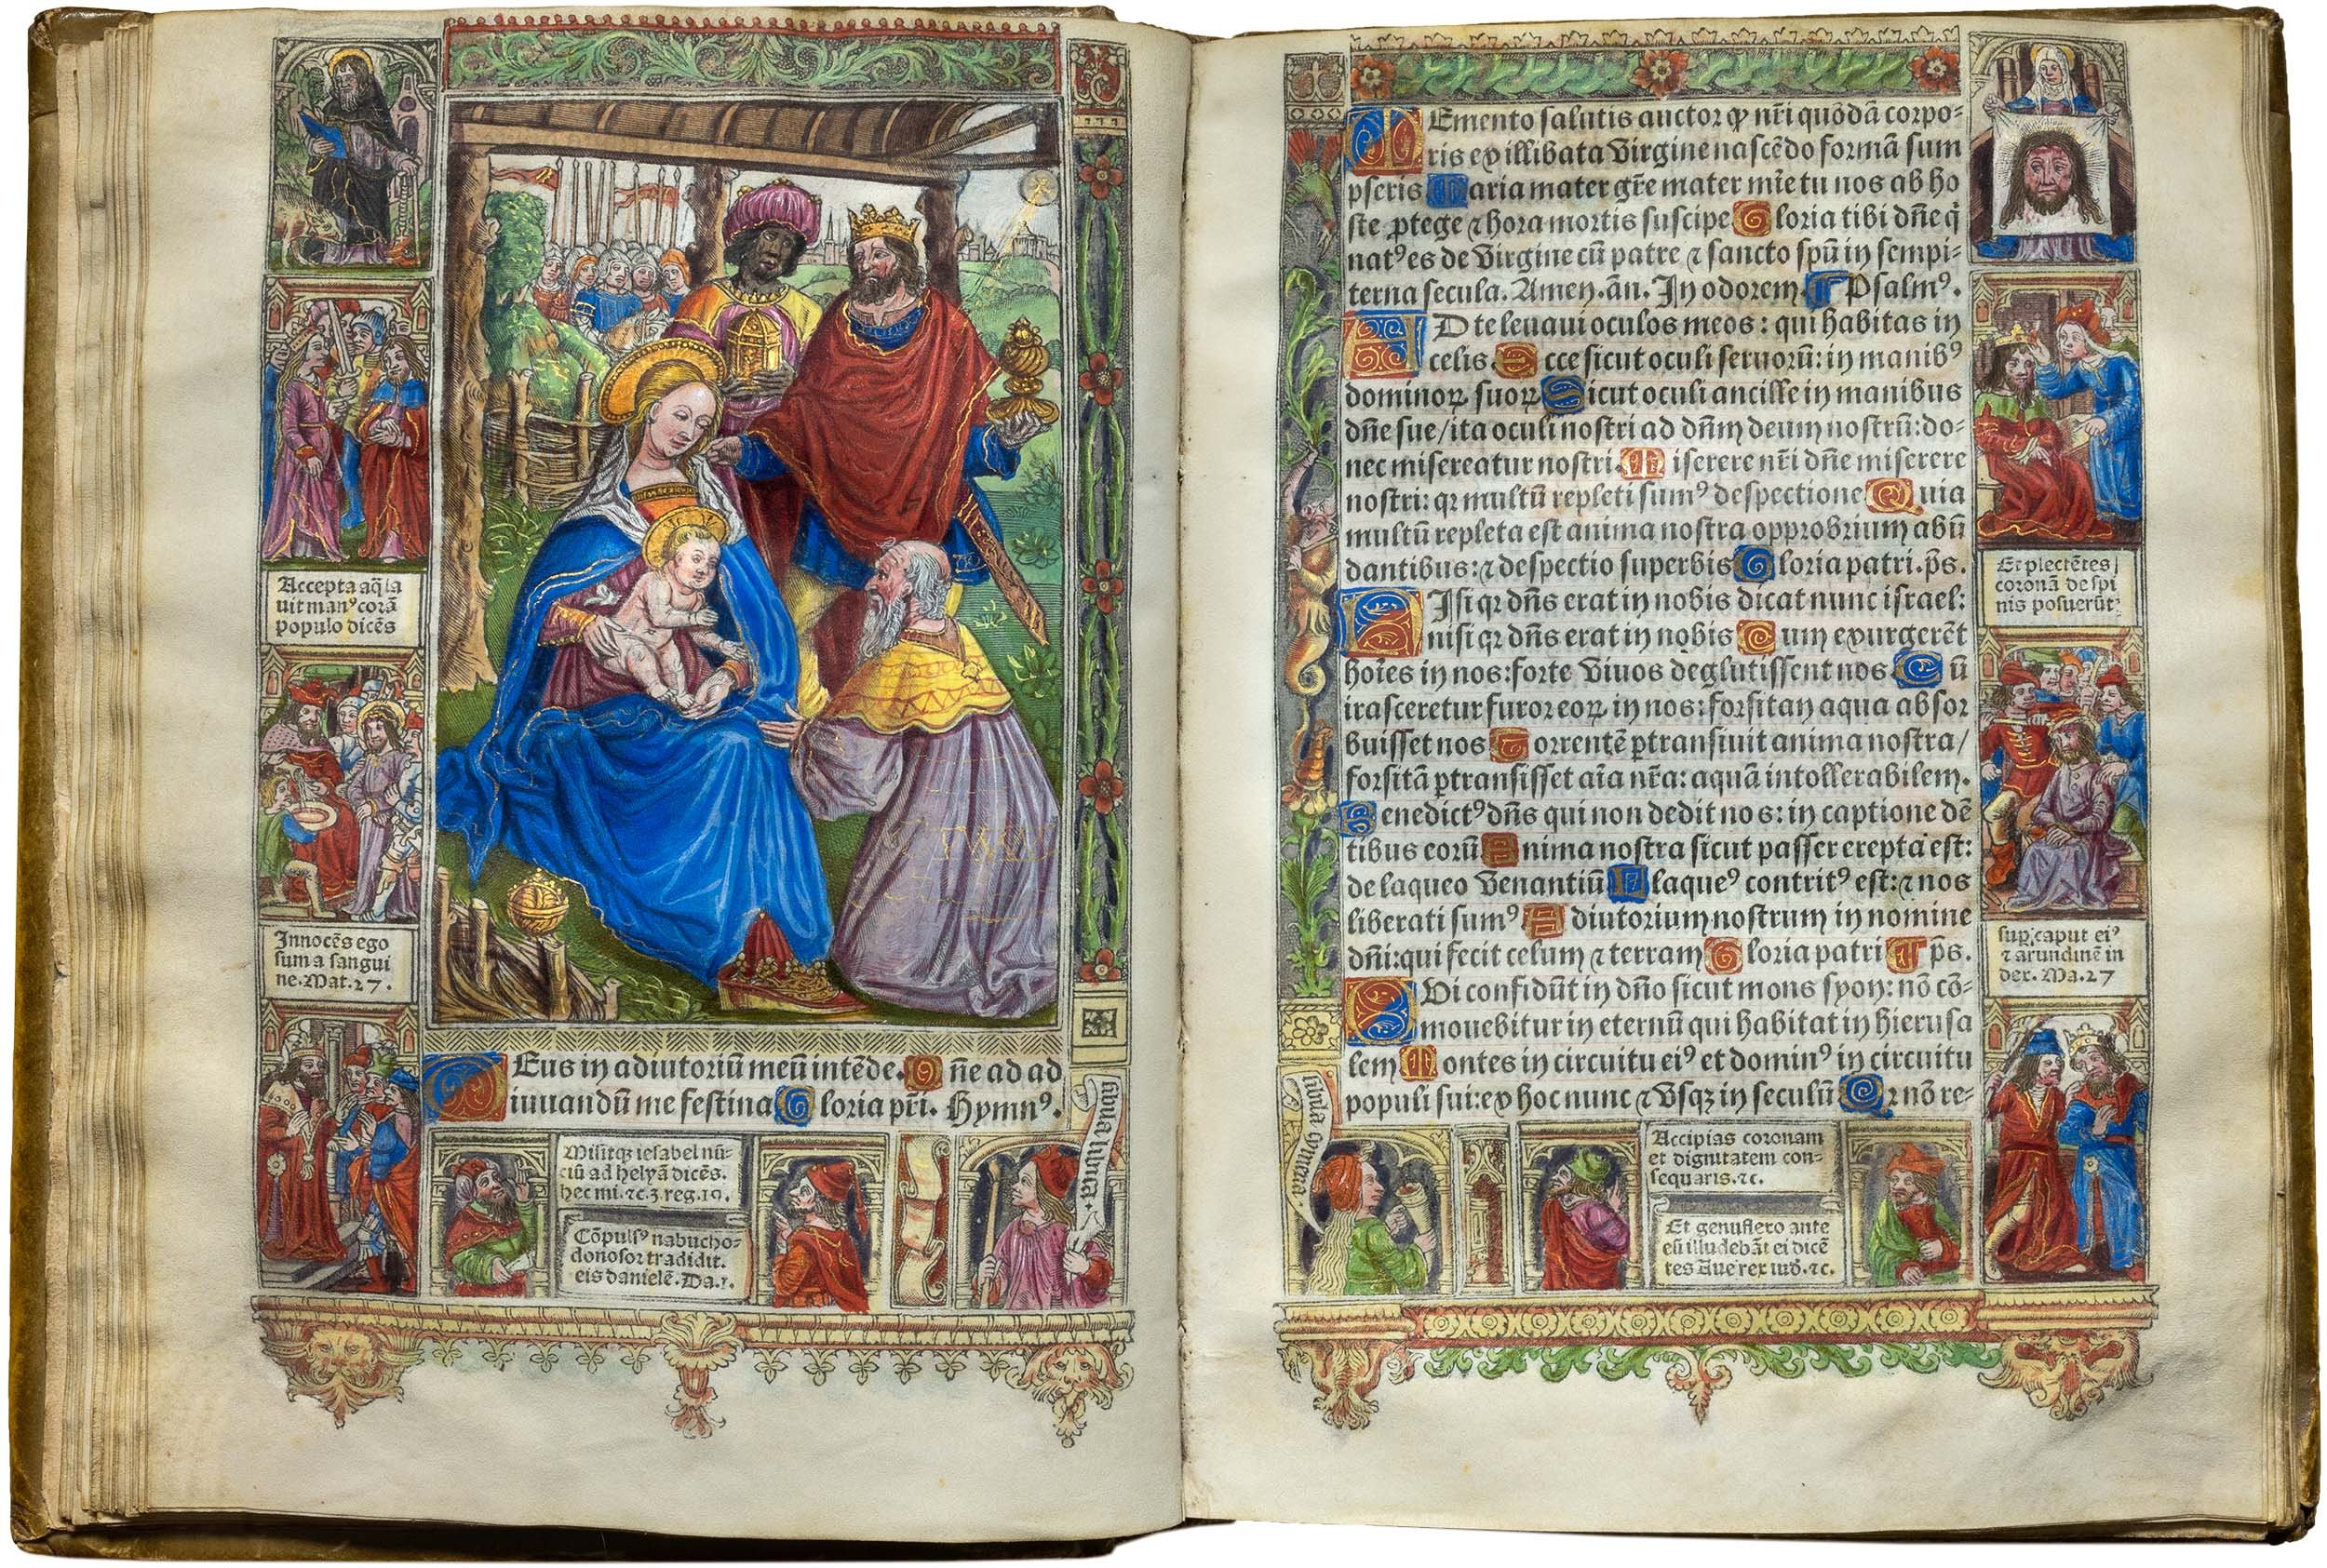 Accepta aq̃ la
uit manꝰ corã
populo dicẽs
Innocẽs ego
sum a sangui
ne. Mat. 27.
DEus in adiutoriũ meũ intẽde. Dñe ad ad
iuuandũ me festina Gloria pr̃i. Hymnꝰ.
Misitqꝫ iesabel nũ-
ciũ ad helyã dicẽs.
hec mi. ⁊c. 3. reg. 19.
Cõpulsꝰ nabucho-
donosor tradidit.
eis danielẽ. Da. 1.
MEmento salutis auctor ꝙ nr̃i quõdã corpo-
ris ex illibata Virgine nascẽdo formã sum
pseris Maria mater gr̃e mater mĩe tu nos ab ho
ste ꝓtege ⁊ hora mortis suscipe Gloria tibi dñe q̃
natꝰ es de Virgine cũ patre ⁊ sancto spũ in sempi-
terna secula. Amen. añ. In odorem. Psalmꝰ.
AD te leuaui oculos meos: qui habitas in
celis. Ecce sicut oculi seruorũ: in manibꝰ
dominoꝝ suoꝝ Sicut oculi ancille in manibus
dñe sue/ita oculi nostri ad dñm deum nostrũ: do-
nec misereatur nostri. Miserere nr̃i dñe miserere
nostri: qꝛ multũ repleti sumꝰ despectione Quia
multũ repleta est anima nostra opprobrium abũ
dantibus: ⁊ despectio superbis Gloria patri. p̃s.
NIsi qꝛ dñs erat in nobis dicat nunc israel:
nisi qꝛ dñs erat in nobis Cum exurgerẽt
hoĩes in nos: forte Viuos deglutissent nos. Cũ
irasceretur furor eoꝝ in nos: forsitan aqua absor
buisset nos Torrentẽ ꝑtransiuit anima nostra/
forsitã ꝑtransisset aĩa nr̃a: aquã intollerabilem.
Benedictꝰ dñs qui non dedit nos: in captione dẽ
tibus eorũ Anima nostra sicut passer erepta est:
de laqueo Venantiũ Laqueꝰ contritꝰ est: ⁊ nos
liberati sumꝰ Adiutorium nostrum in nomine
dñi: qui fecit celum ⁊ terram Gloria patri p̃s.
QVi confidũt in dño sicut mons syon: nõ cõ-
mouebitur in eternũ qui habitat in hierusa
lem Montes in circuitu eiꝰ et dominꝰ in circuitu
populi sui: ex hoc nunc ⁊ Vsqꝫ in seculũ Qꝛ nõ re-
Et plectẽtes
coronã de spi
nis posuerũt
suꝑ caput eiꝰ
⁊ arundinẽ in
der. Ma. 27
Accipias coronam
et dignitatem con-
sequaris. ⁊c.
Et genuflexo ante
eũ illudebãt ei dicẽ
tes Aue rex iud. ⁊c.